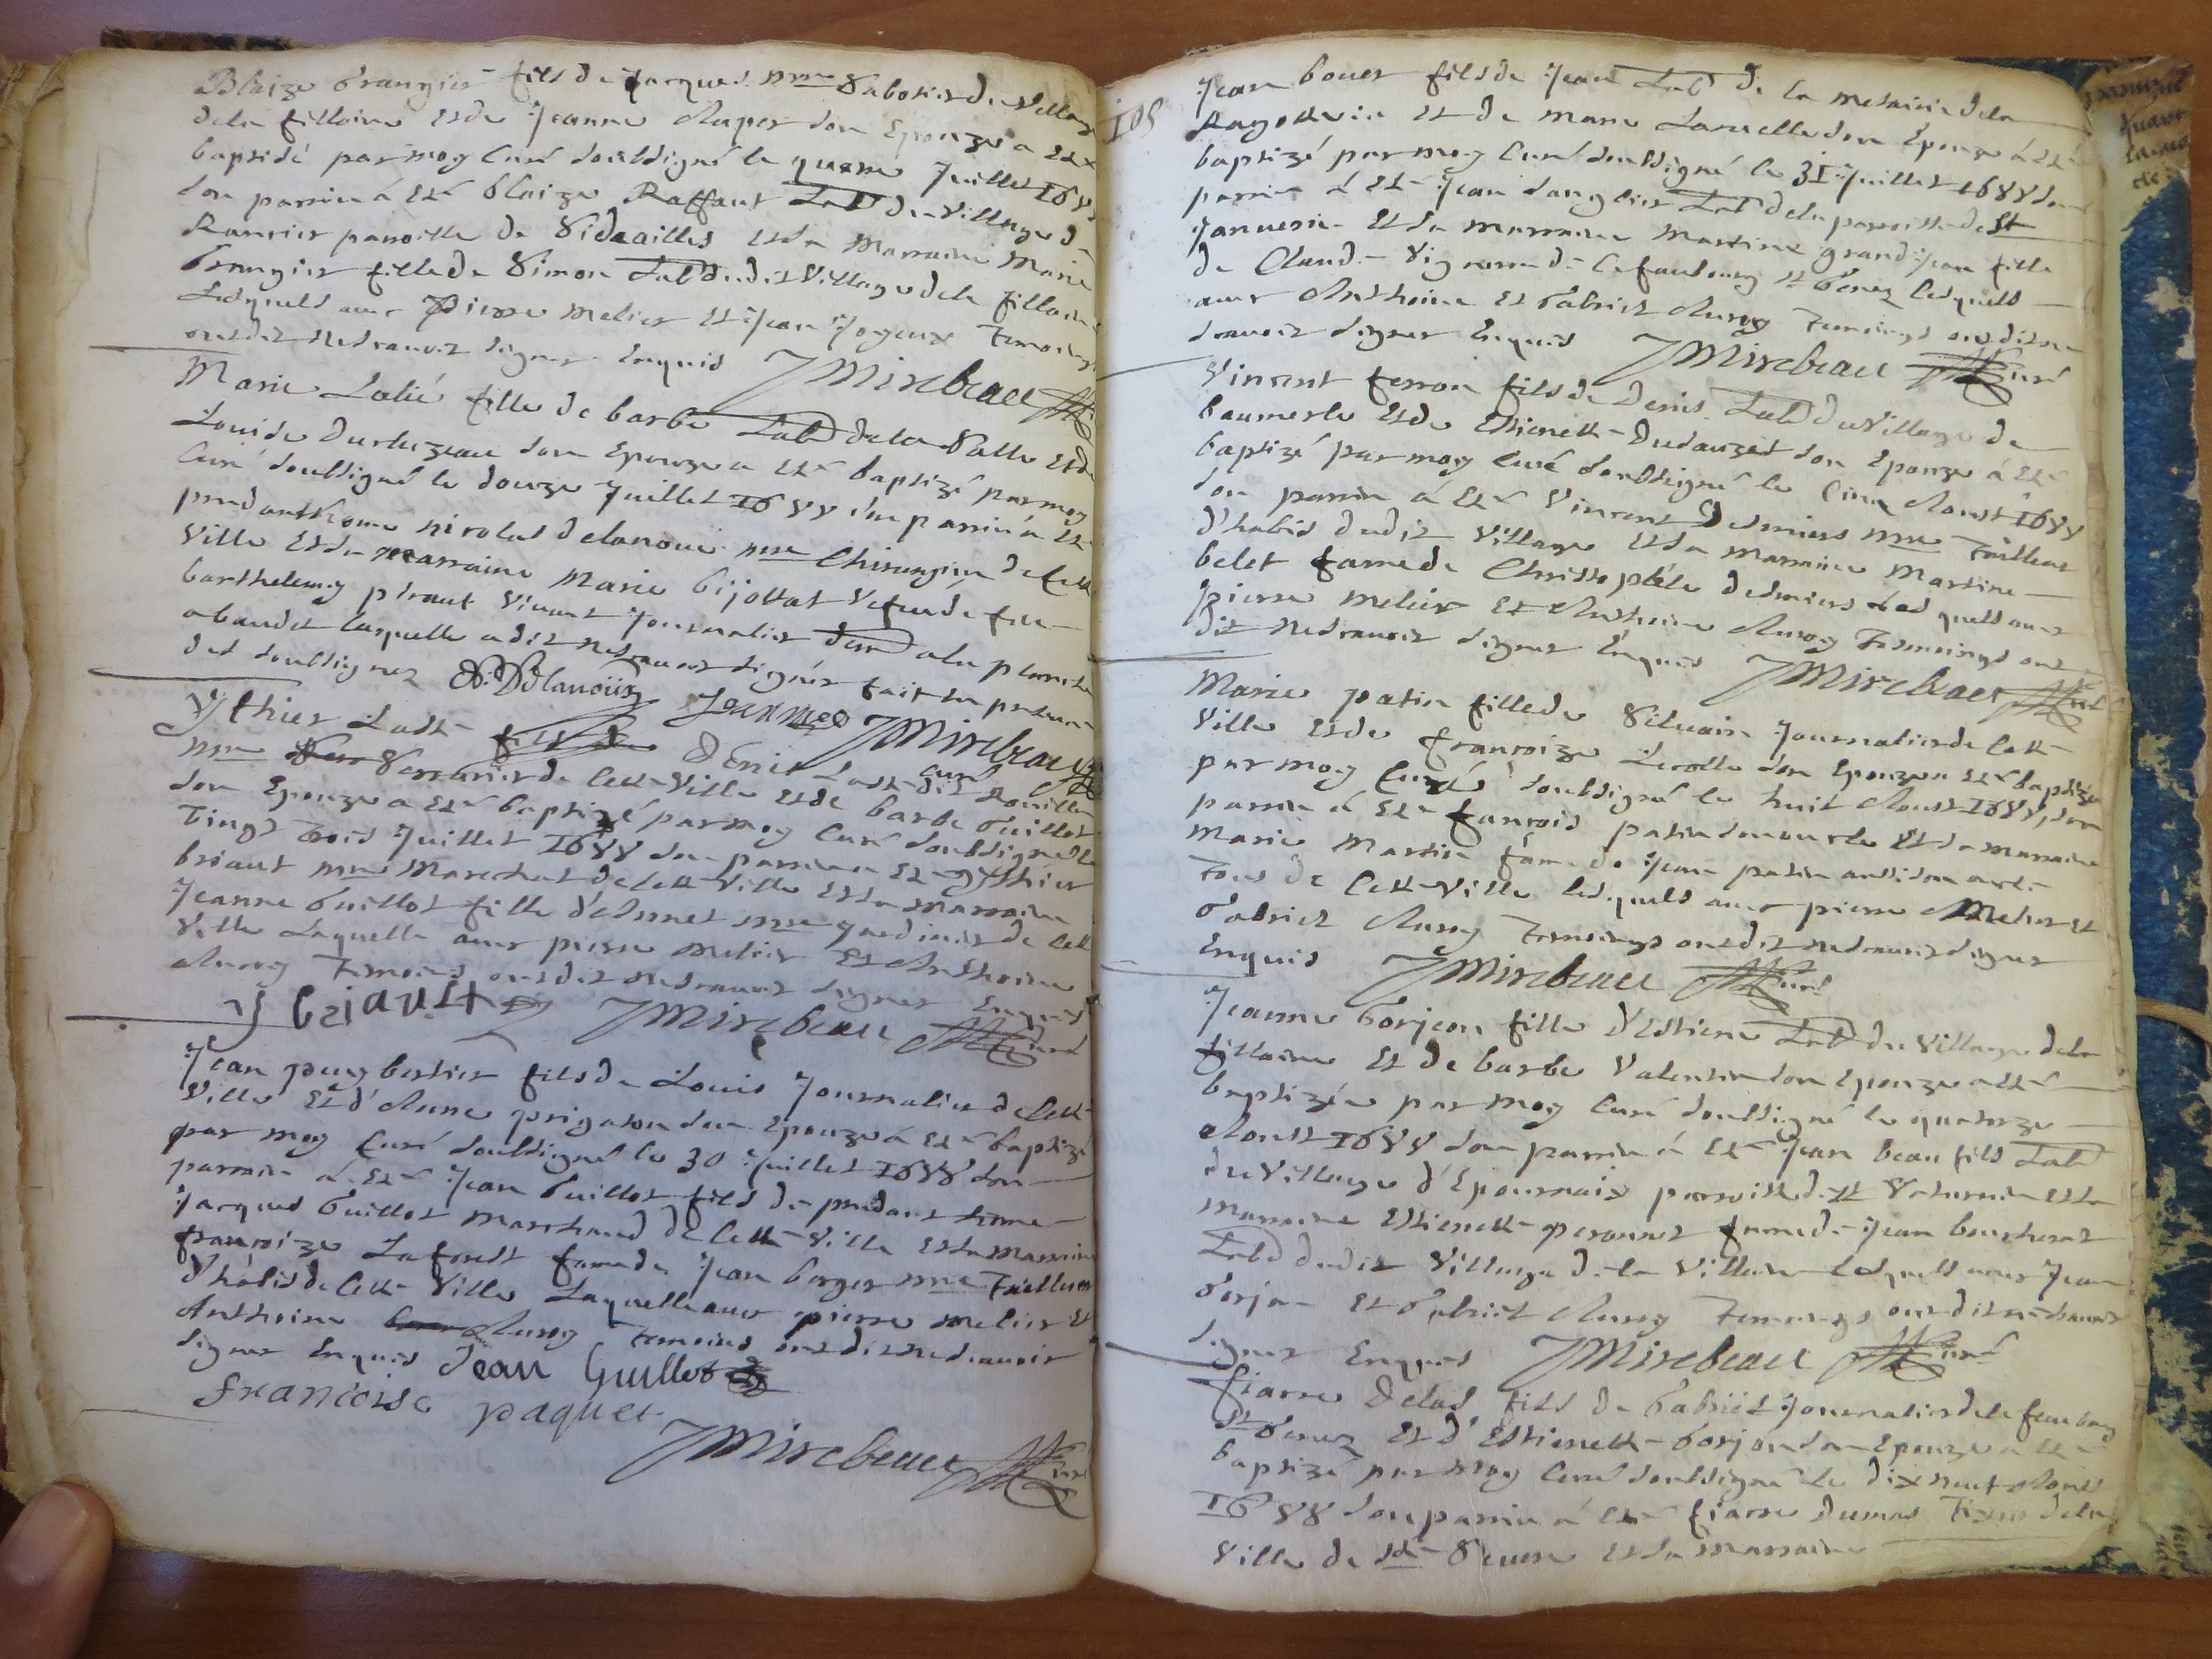 Blaize Grangier fils de Jacques mre Sabotier du village
dela fillaine et de Jeanne Auper son Epouze a esté
baptisé par moy Curé soubsigné le Juillet 1688
son parrin á esté Blaize Raffaut Lab du village de
parroisse de Vidaailles et sa Marraine Marie
Grangier fille de Simon Lab dudit village dela fillaine
Lesquels avec Pierre Melier et Jean Joyeux Temoins
ont dit ne scavoir signer Enquis JMirebeau Curé
Marie Lalié fille de barbe Lab dela Salle et de
Louise Durluzeau son Epouze a esté baptizé par moy
Curé soubsigné le douze Juillet 1688 son parrin a esté
prudanthome nicolas delanoue mre Chirurgien de cette
ville et sa marraine Marie bijottat Vefue de feu
barthelemy piraut vivant Journalier
laquelle a dit ne scavoir signer fait en presence
des soubsignez N. Delanoüe JMirebeau
Curé
Ythier Last fils de Denis Last dit Rouillé
mre Serrurier de Cette Ville et de barbe Guillot
son Epouze a esté baptizé par moy Curé soubsigné le
vingt trois Juillet 1688 son parrin a esté Ythier
briaut mre Marechal de Cette Ville et sa Marraine
Jeanne Guillot fille d'Annet mre gardinier de Cette
Ville Laquelle avec pierre melier et Anthoine
Auroy Temoins ont dit ne scavoir signer Enquis
Y briault JMirebeau Curé
Jean puybertier fils de Louis Journalier de Cette
Ville et d'Anne prigaron son Epouze á esté baptizé
par moy Curé soubsigné le 30 Juillet 1688 son
parrin á esté Jean Guillot fils de prudant home
Jacques Guillot Marchand de Cette Ville et sa Marraine
francoize Laforest fame de Jean berger mre Tailleur
d'habis de Cette Ville Laquelle avec pierre melier et
Anthoine Auroy Temoins ont dit ne scavoir
signer Enquis Jean Guillot
francoise paquet
JMirebeau Curé
105
Jean bouer fils de Jean Lab de la metairie dela
Ragotterie et de Marie Laruelle son Epouze á esté
baptizé par moy Curé soubsigné le 31 Juillet 1688 son
parrin á esté Jean Danglier Lab dela parroisse de St
Januerin et sa marraine Martine grand Jean fille
de Claude Vigneron de Ce faubourg St Genez Lesquels
avec Anthoine et Gabriel Auroy Temoings ont dit ne
scavoir signer Enquis JMirebeau Curé
Vincent ferron fils de Denis Lab du Village de
baumerle et de Estienette Dudauzet son Epouze á esté
baptizé par moy Curé soubsigné le Cinq Aoust 1688
son parrin á esté Vincent Desmiers mre Tailleur
d'habis dudit Village et sa Marraine Martine
belet fame de Christophle desmiers Lesquels avec
pierre Melier et Anthoine Auroy Temoings ont
dit ne scavoir signer Enquis JMirebeau Curé
Marie patin fille de Silvain Journalier de Cette
Ville et de francoize Lerolle son Epouze a esté baptizée
par moy Curé soubsigné le huit Aoust 1688, son
parrin á esté francois patin son oncle et sa marraine
Marie Martin fame de Jean patin aussi son oncle
Tous de Cette Ville Lesquels avec pierre Melier et
Gabriel Auroy Temoings ont dit ne scavoir signer
Enquis JMirebeau Curé
Jeanne Gorjeon fille d'Estiene Lab du Village dela
fillaine et de barbe Valentin son Epouze a esté
baptizée par moy Curé soubsigné le quatorze
Aoust 1688 son parrin á esté Jean beaufils Lab
du Village d'Epournaix parroisse de St Saturnin et sa
Marraine Estienette peronnet fame de Jean boucherat
Lab dudit Village de la Villaine Lesquels avec Jean
Gorjon et Gabriel Auroy Temoings ont dit ne scavoir
signer Enquis JMirebeau Curé
fiacre Delas fils de Gabriel Journalier de Ce faubourg
St Genez et d'Estienette Gorjon son Epouze a esté
baptizé par moy Curé soubsigné le dix neuf Aoust
1688 son parrin á esté fiacre Dumas Tixier dela
Ville de Ste Severe et sa Marraine